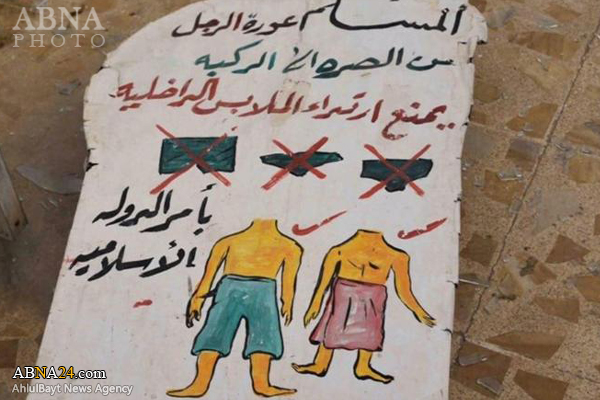 ABNA
PHOTO
المسلم عورة الرجل
من الصره الا الركبه
يمنع ارتداء الملابس الداخليه
بأمر الدوله
الأسلاميه
ABNA24.com
AhlulBayt News Agency